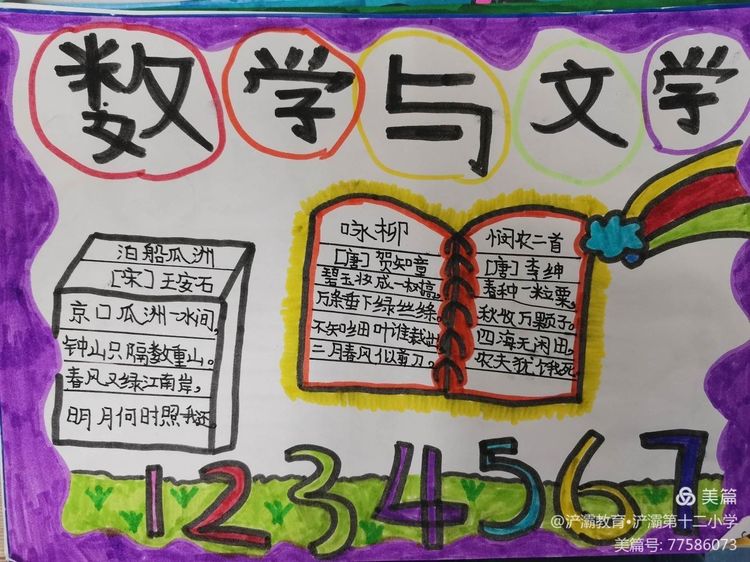 数学与文学
泊船瓜洲
[宋]王安石
京口瓜洲一水间,
钟山只隔数重山。
春风又绿江南岸,
明月何时照我还。
咏柳
[唐]贺知章
碧玉妆成一树高,
万条垂下绿丝绦。
不知细叶谁裁出,
二月春风似剪刀。
悯农二首
[唐]李绅
春种一粒粟,
秋收万颗子。
四海无闲田,
农夫犹饿死。
1234567
美篇
@浐灞教育·浐灞第十二小学
美篇号: 77586073